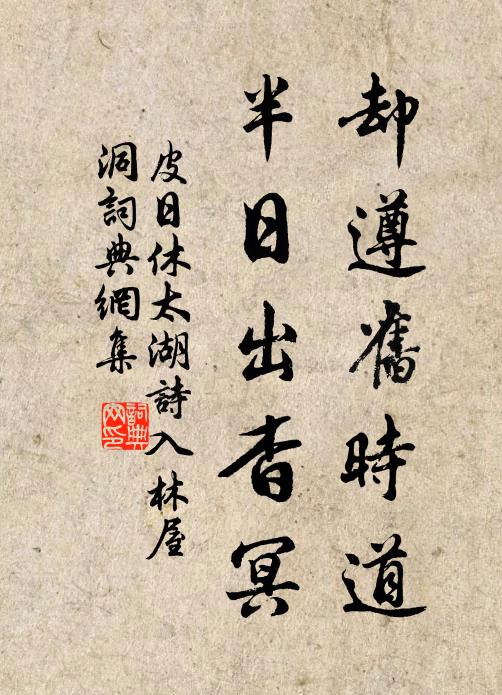 却遵舊時道
半日出杳冥
皮日休太湖詩入林屋
洞詞典網集
詞典
网印